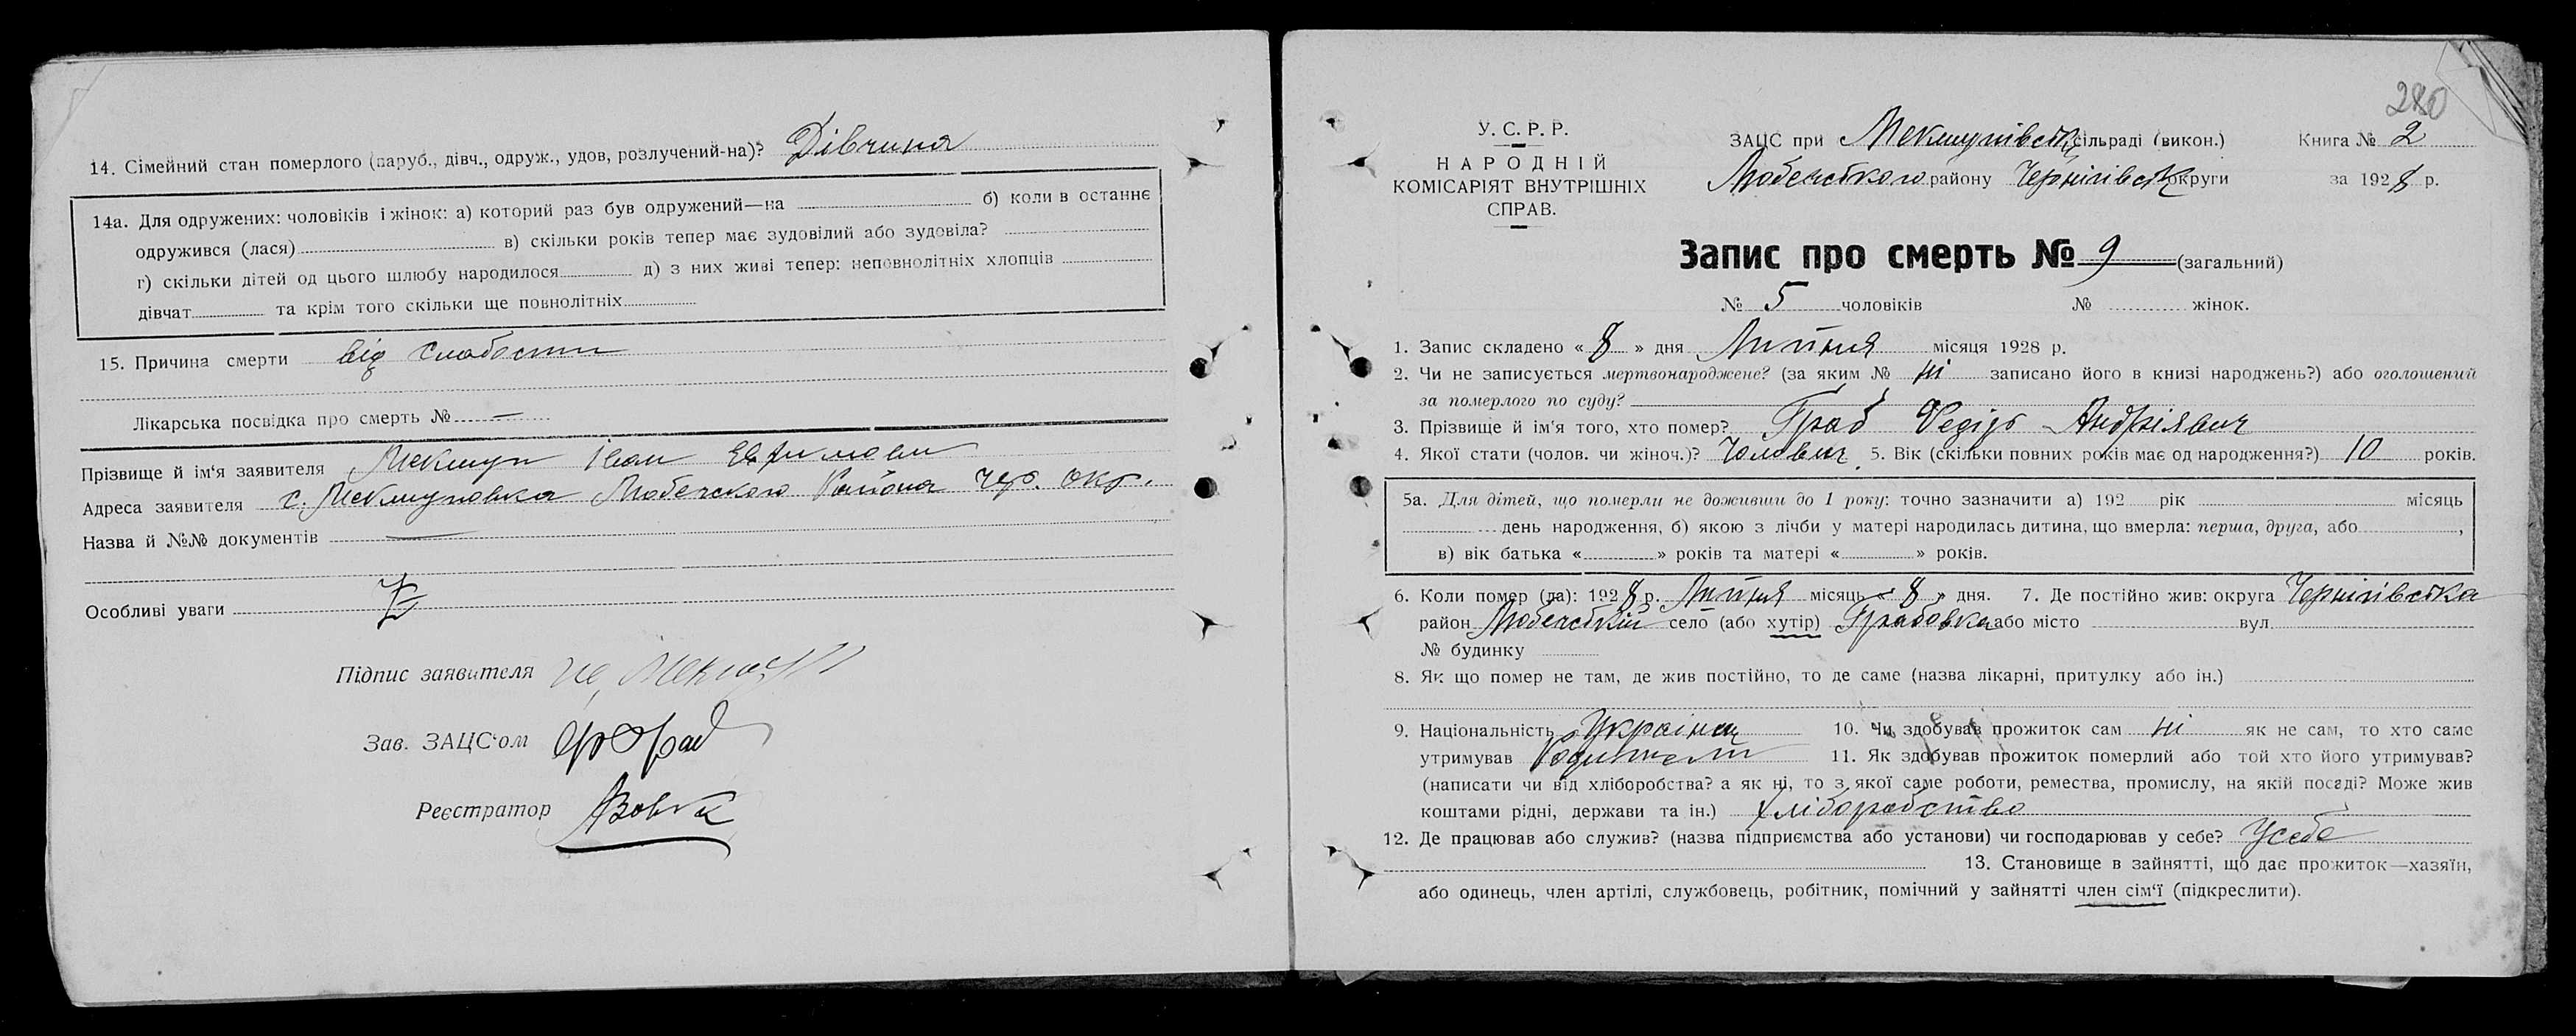 14. Сімейний стан померлого (паруб., дівч., одруж., удов, розлучений-на)? Дівчина
14а. Для одружених: чоловіків і жінок: а) который раз був одружений—на б) коли в останнє
одружився (лася) в) скільки років тепер має зудовілий або зудовіла?
г) скільки дітей од цього шлюбу народилося д) з них живі тепер: неповнолітніх хлопців
дівчат та крім того скільки ще повнолітніх
15. Причина смерти від слабости
Лікарська посвідка про смерть № —
Прізвище й ім'я заявителя Мекшун Іван
Адреса заявителя с. Мекшуновка Любечского Района Чер. окр.
Назва й №№ документів —
Особливі уваги
Підпис заявителя Мекшун
Зав. ЗАЦС'ом
Реєстратор АВовк
280
У. С. Р. Р.
НАРОДНІЙ
КОМІСАРІЯТ ВНУТРІШНІХ
СПРАВ.
ЗАЦС при Мекшунівськ сільраді (викон.) Книга № 2
Любечського району Чернігівськ округи за 1928 р.
Запис про смерть № 9 (загальний)
№ 5 чоловіків № жінок.
1. Запис складено « 8 » дня Липня місяця 1928 р.
2. Чи не записується мертвонароджене? (за яким № ні записано його в книзі народжень?) або оголошений
за померлого по суду?
3. Прізвище й ім'я того, хто помер? Граб Федір Андріявич
4. Якої стати (чолов. чи жіноч.)? Чоловіч. 5. Вік (скільки повних років має од народження?) 10 років.
5а. Для дітей, що померли не доживши до 1 року: точно зазначити а) 192 рік місяць
день народження, б) якою з лічби у матері народилась дитина, що вмерла: перша, друга, або ,
в) вік батька « » років та матері « » років.
6. Коли помер (ла): 1928 р. Липня місяць « 8 » дня. 7. Де постійно жив: округа Чернігівська
район Любечський село (або хутір) Грабовка або місто вул.
№ будинку
8. Як що помер не там, де жив постійно, то де саме (назва лікарні, притулку або ін.)
9. Національність Українец 10. Чи здобував прожиток сам ні як не сам, то хто саме
утримував Родители 11. Як здобував прожиток померлий або той хто його утримував?
(написати чи від хліборобства? а як ні, то з якої саме роботи, ремества, промислу, на якій посаді? Може жив
коштами рідні, держави та ін.) хліборобство
12. Де працював або служив? (назва підприємства або установи) чи господарював у себе? Усебе
13. Становище в зайнятті, що дає прожиток—хазяїн,
або одинець, член артілі, службовець, робітник, помічний у зайнятті член сім'ї (підкреслити).